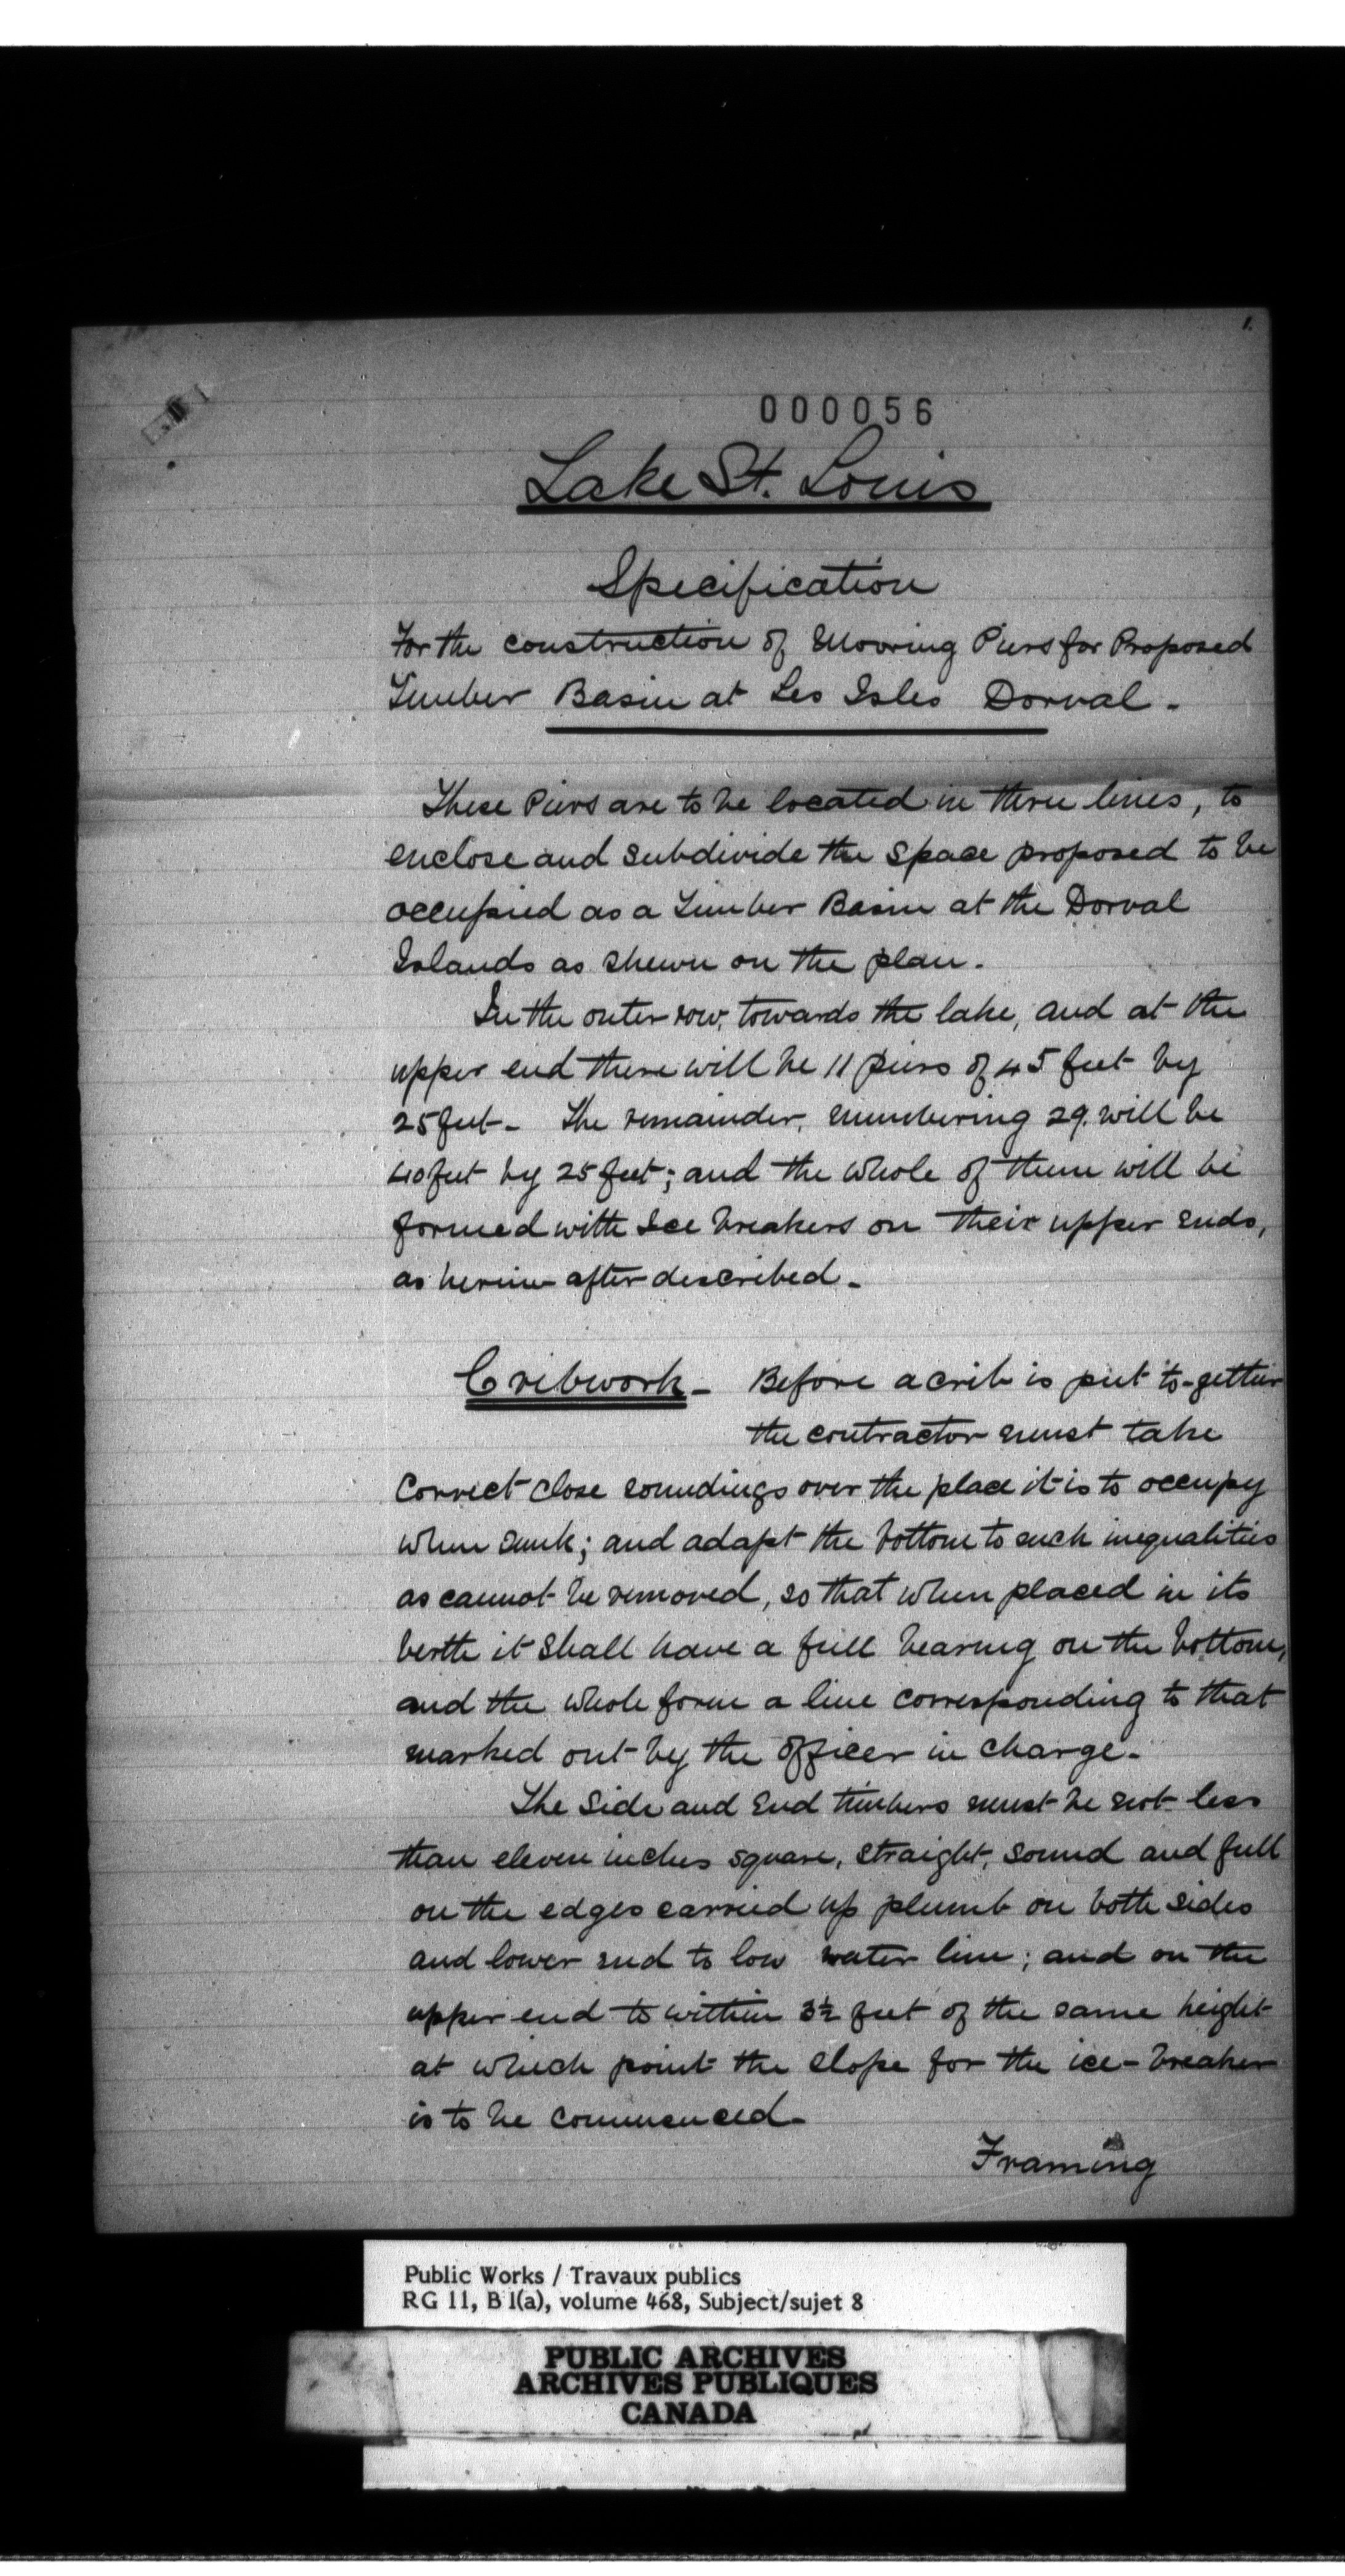 1.
000056
Lake St. Louis
Specification
For the construction of Mooring Piers for Proposed
Timber Basin at Les Isles Dorval.
These Piers are to be located in three lines, to
enclose and subdivide the space proposed to be
occupied as a Timber Basin at the Dorval
Islands as shewn on the plan.
In the outer row, towards the lake, and at the
upper end there will be 11 piers of 45 feet by
25 feet - The remainder, numbering 29, will be
40 feet by 25 feet; and the whole of them will be
formed with Ice breakers on their upper ends,
as herein after described -
Cribwork - Before a crib is put to-gether
the contractor must take
correct close soundings over the place it is to occupy
when sunk; and adapt the bottom to such inequalities
as cannot be removed, so that when placed in its
berth it shall have a full bearing on the bottom,
and the whole form a line corresponding to that
marked out by the officer in charge.
The side and end timbers must be not less
than eleven inches square, straight, sound and full
on the edges carried up plumb on both sides
and lower end to low water line; and on the
upper end to within 3½ feet of the same height
at which point the slope for the ice-breaker
is to be commenced -
Framing
Public Works / Travaux publics
RG 11, B 1(a), volume 468, Subject/sujet 8
PUBLIC ARCHIVES
ARCHIVES PUBLIQUES
CANADA